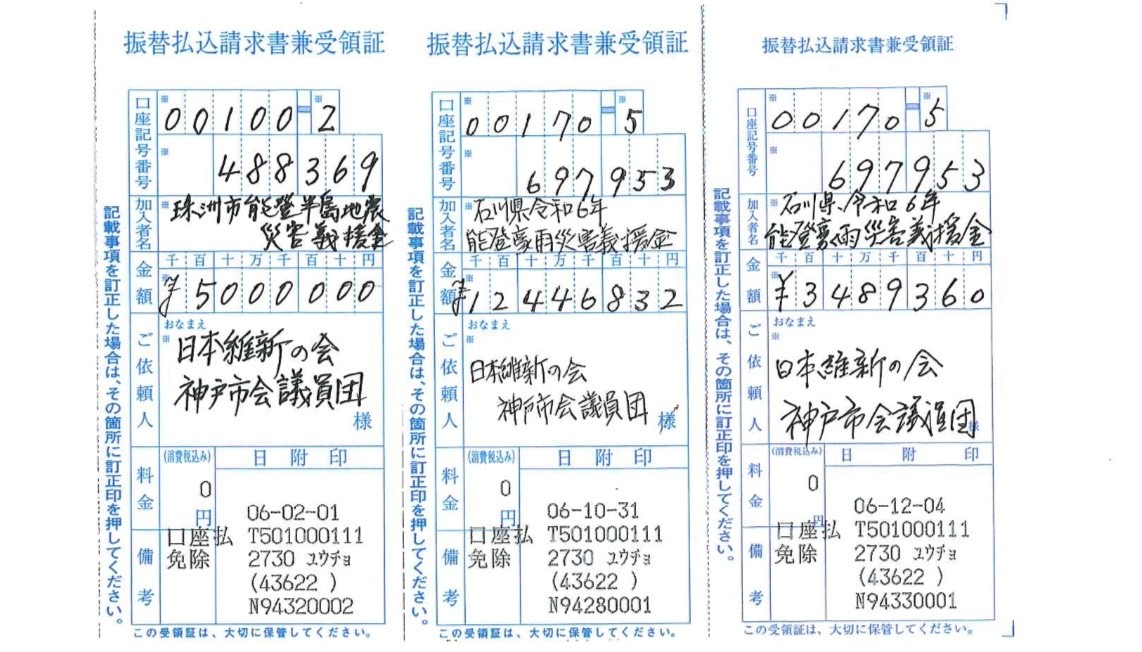 振替払込請求書兼受領証
口座記号番号
※
00100
=
※
2
※
488369
加入者名
※
珠洲市能登半島地震
災害義援金
金額
千百十万千百十円
※
¥5000000
ご依頼人
おなまえ
※
日本維新の会
神戸市会議員団
様
料金
(消費税込み)
0
円
日附印
06-02-01
備考
口座払
免除
T501000111
2730 ユウチョ
(43622 )
N94320002
記載事項を訂正した場合は、その箇所に訂正印を押してください。
この受領証は、大切に保管してください。
振替払込請求書兼受領証
口座記号番号
※
00170
=
※
5
※
697953
加入者名
※
石川県令和6年
能登豪雨災害義援金
金額
千百十万千百十円
※
¥12446832
ご依頼人
おなまえ
※
日本維新の会
神戸市会議員団
様
料金
(消費税込み)
0
円
日附印
06-10-31
備考
口座払
免除
T501000111
2730 ユウチョ
(43622 )
N94280001
記載事項を訂正した場合は、その箇所に訂正印を押してください。
この受領証は、大切に保管してください。
振替払込請求書兼受領証
口座記号番号
※
00170
=
※
5
※
697953
加入者名
※
石川県令和6年
能登豪雨災害義援金
金額
千百十万千百十円
※
¥3489360
ご依頼人
おなまえ
※
日本維新の会
神戸市会議員団
様
料金
(消費税込み)
0
円
日附印
06-12-04
備考
口座払
免除
T501000111
2730 ユウチョ
(43622 )
N94330001
記載事項を訂正した場合は、その箇所に訂正印を押してください。
この受領証は、大切に保管してください。